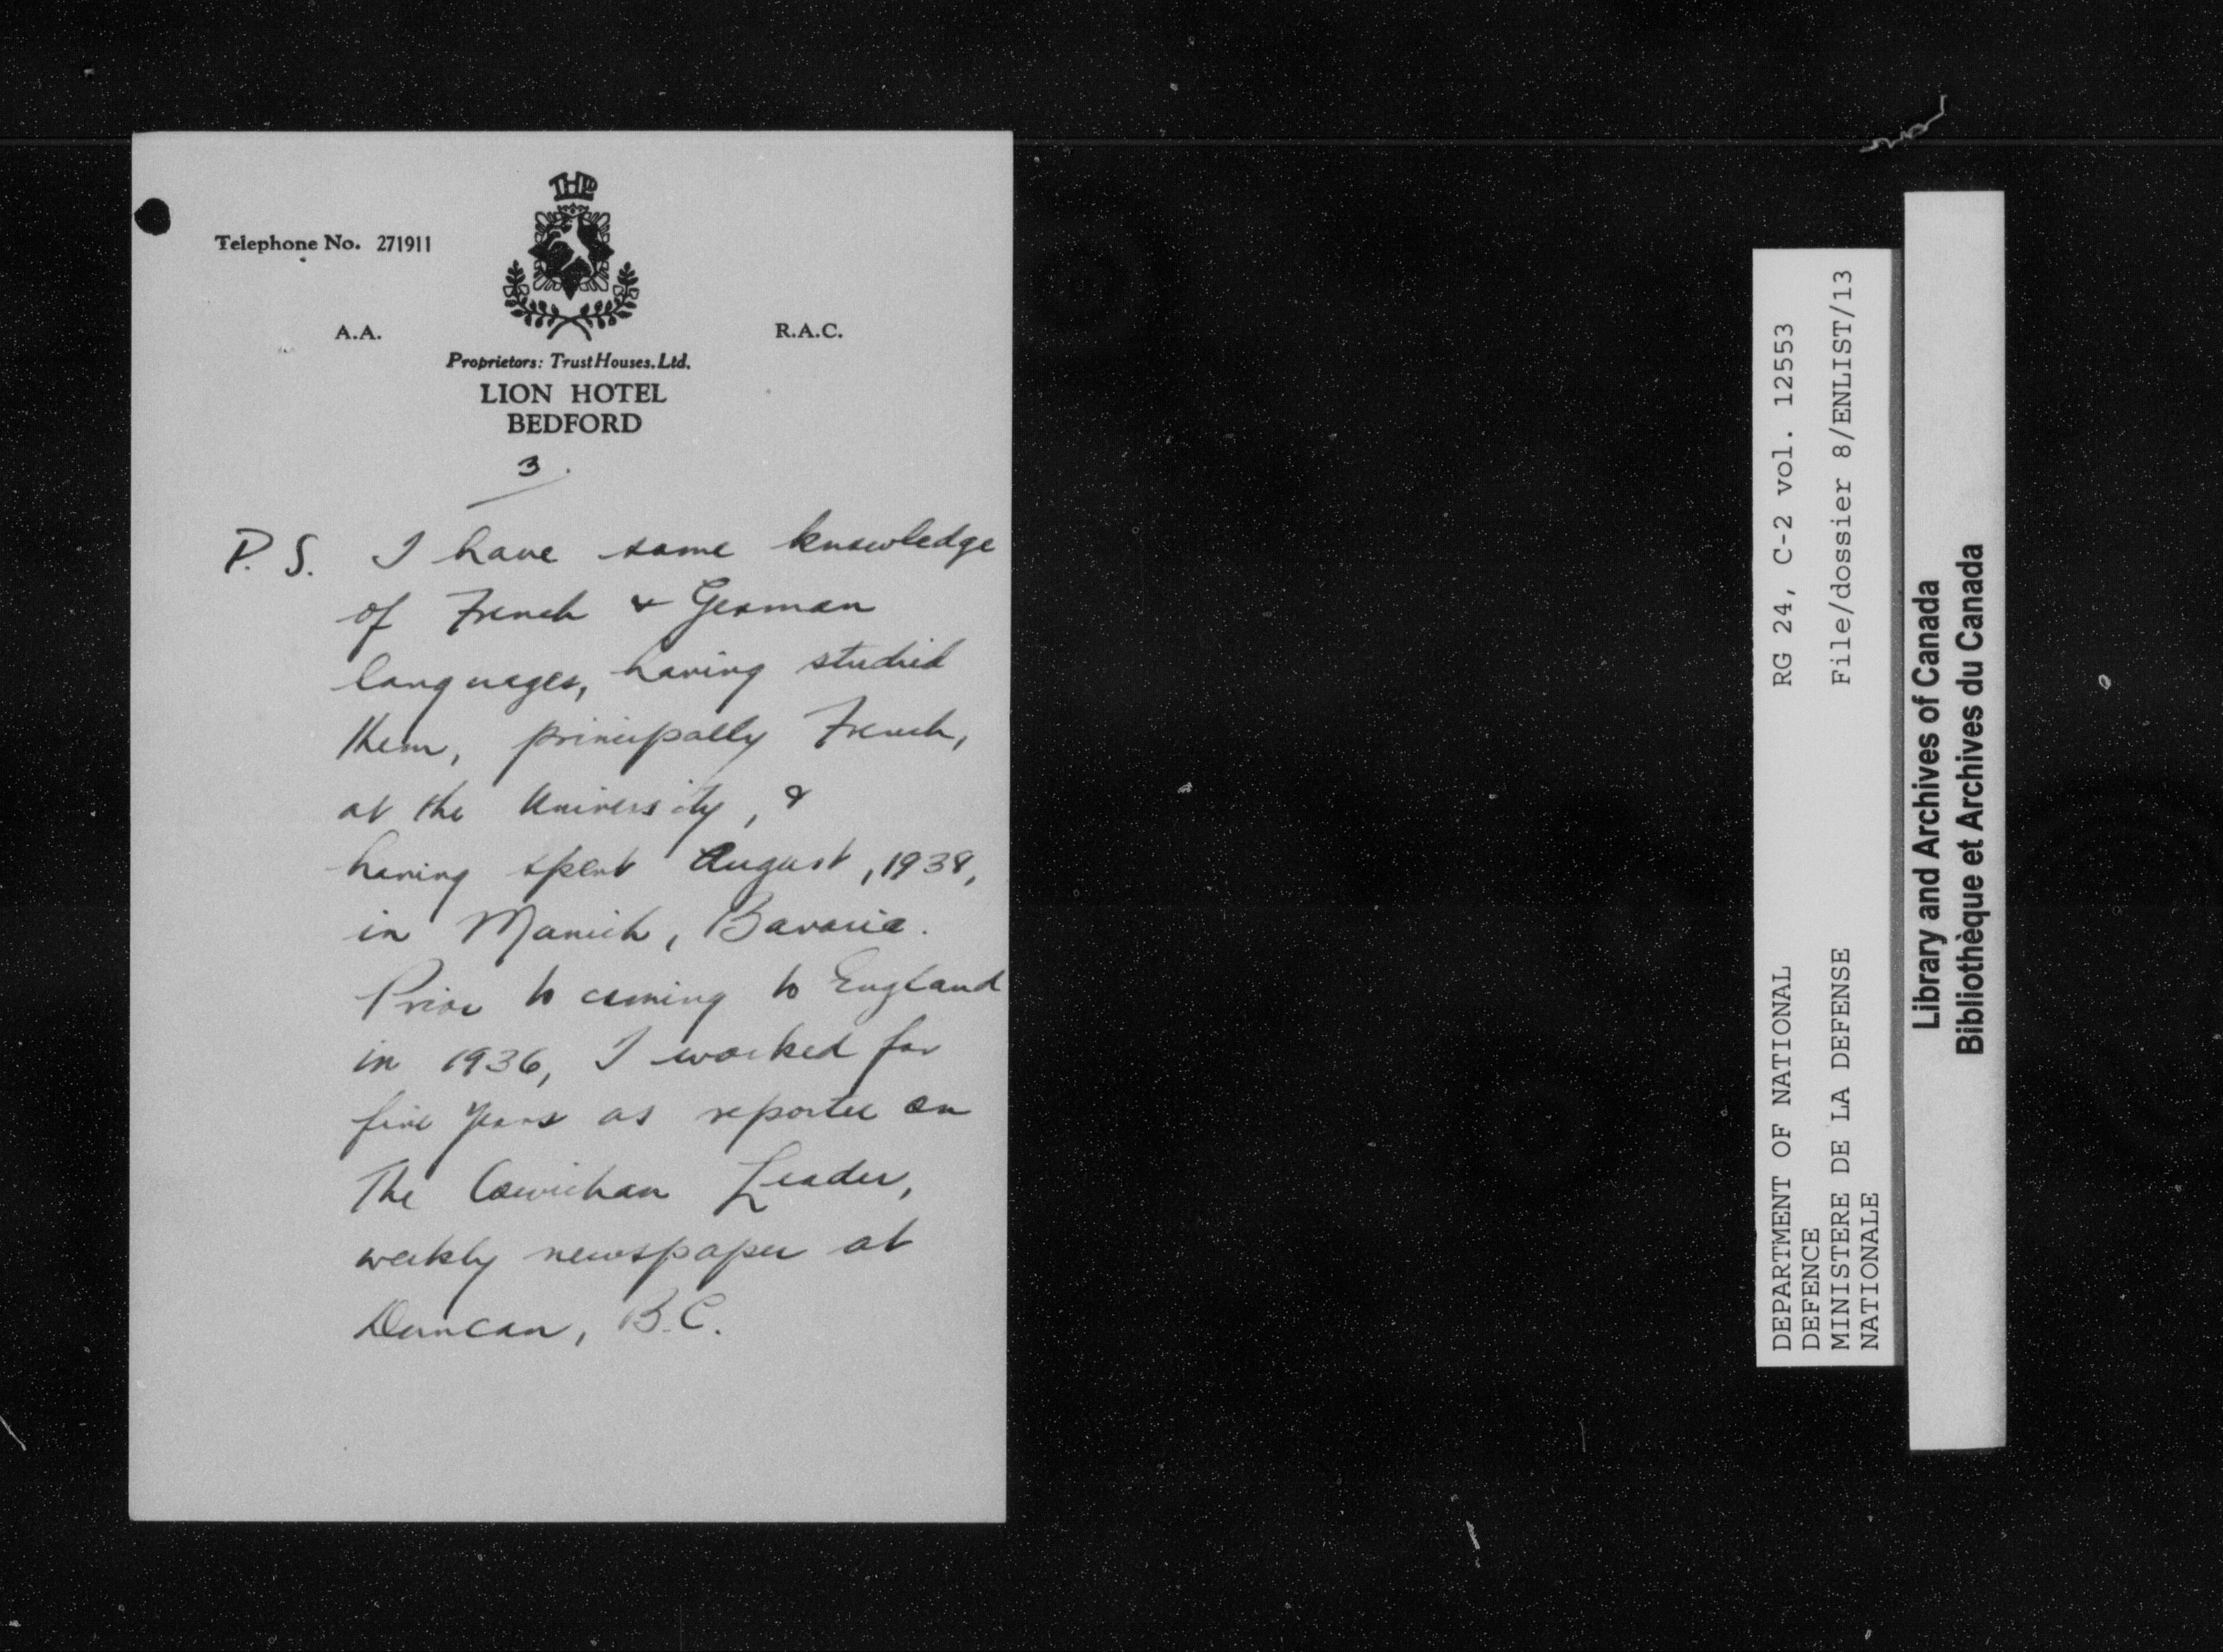 THL
Telephone No. 271911
A.A.
R.A.C.
Proprietors: Trust Houses. Ltd.
LION HOTEL
BEDFORD
3.
P.S. I have some knowledge
of French & German
languages, having studied
them, principally French,
at the University, &
having spent August, 1938,
in Munich, Bavaria.
Prior to coming to England
in 1936, I worked for
five years as reporter on
The Cowichan Leader,
weekly newspaper at
Duncan, B.C.
DEPARTMENT OF NATIONAL
DEFENCE
MINISTERE DE LA DEFENSE
NATIONALE
RG 24, C-2 vol. 12553
File/dossier 8/ENLIST/13
Library and Archives of Canada
Bibliothèque et Archives du Canada